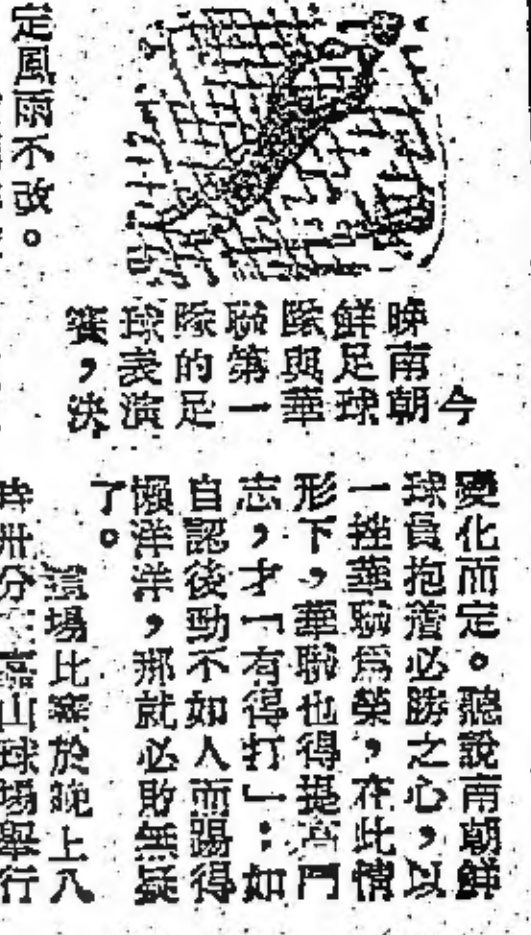 今
晚南朝
鮮足球
隊與華
聯第一
隊的足
球表演
賽，決
定風雨不改。
變化而定。聽說南朝鮮
球員抱着必勝之心，以
一挫華聯爲榮，在此情
形下，華聯也得提高鬥
志，才「有得打」：如
自認後勁不如人而踢得
懶洋洋，那就必敗無疑
了。
這場比賽於晚上八
時卅分嘉山球場舉行